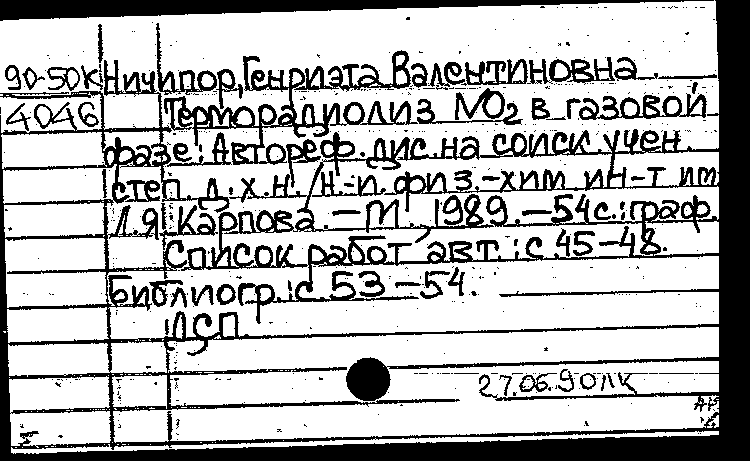 90-50К Ничипор, Генриэта Валентиновна.
4046 Терморадиолиз NO2 в газовой
фазе: Автореф. дис. на соиск. учен.
степ. д.х.н. / Н.-и. физ.-хим. ин-т им.
Л.Я. Карпова. — М., 1989. — 54 с.: граф.
Список работ авт.: с. 45-48.
Библиогр.: с. 53-54.
ДСП
27.06.90 ЛК